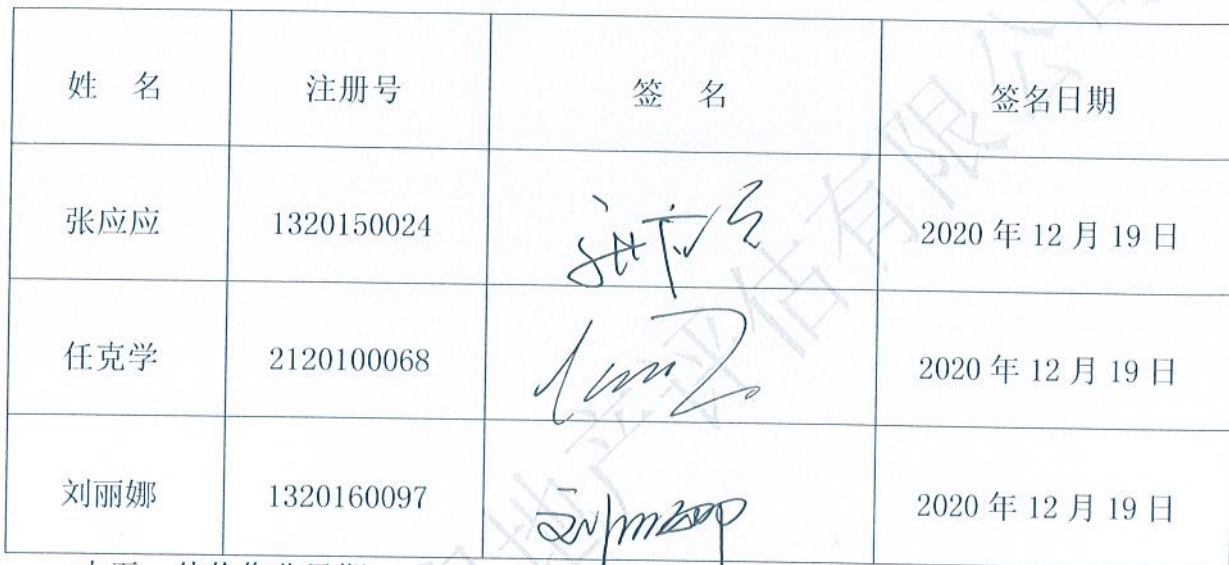 姓 名 注册号 签 名 签名日期
张应应 1320150024 2020 年 12 月 19 日
任克学 2120100068 2020 年 12 月 19 日
刘丽娜 1320160097 刘丽娜 2020 年 12 月 19 日
地产评估有限公司